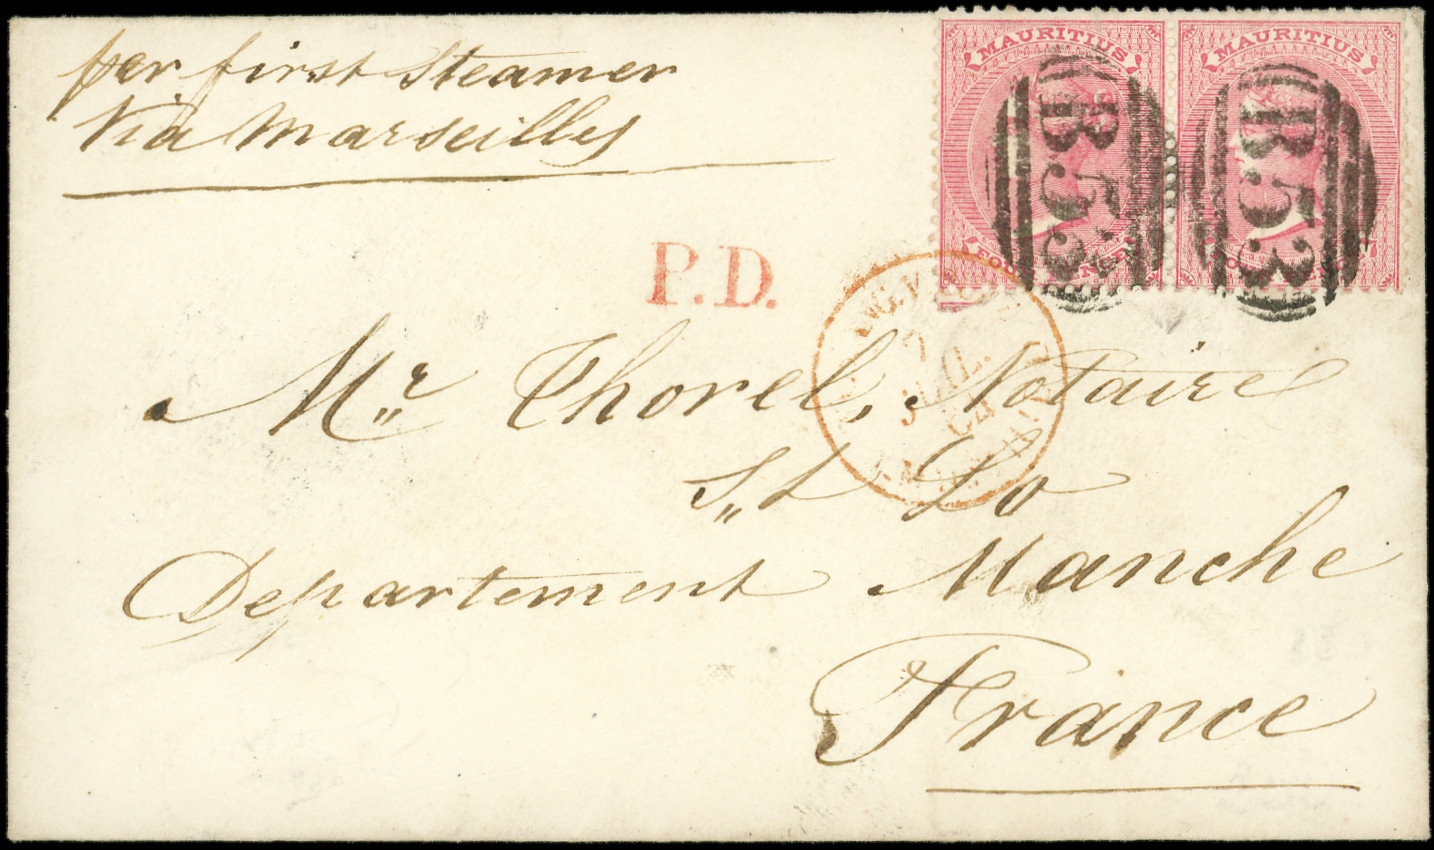 per first Steamer
Via Marseilles
MAURITIUS MAURITIUS
B53 B53
FOUR PENCE
P.D.
7
JUIL.
Mr Thorel, Notaire
St Lo
Departement Manche
France